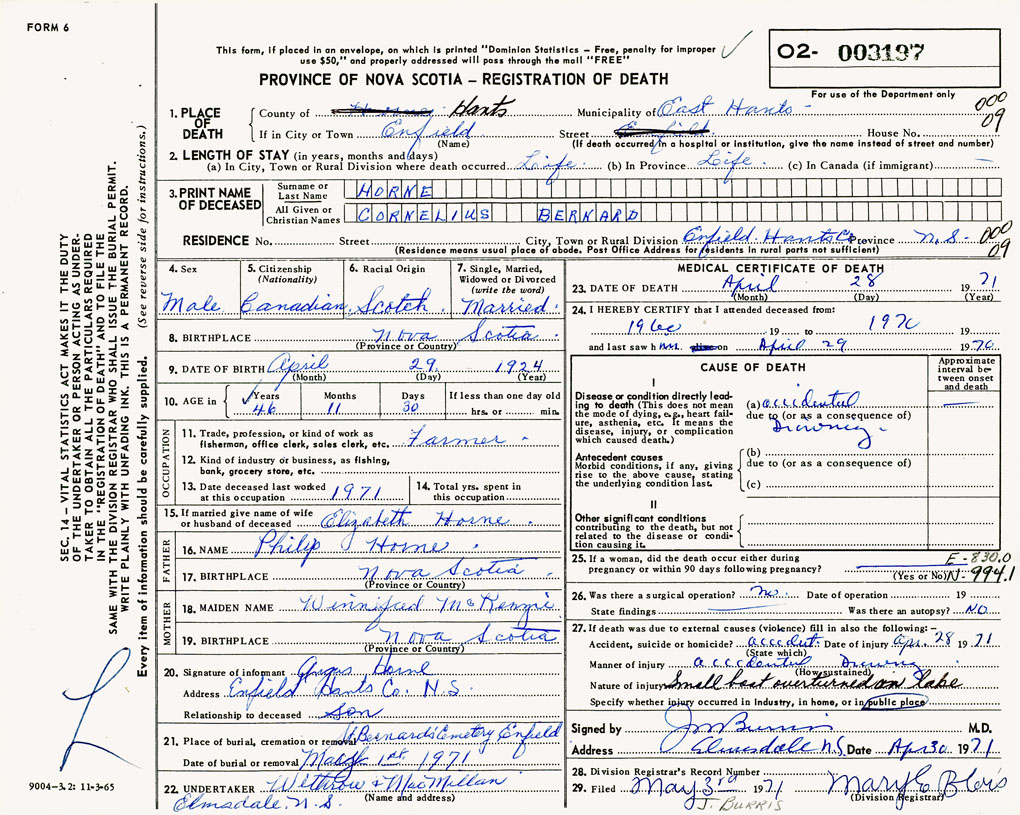 FORM 6
This form, if placed in an envelope, on which is printed "Dominion Statistics – Free, penalty for improper
use $50," and properly addressed will pass through the mail "FREE"
PROVINCE OF NOVA SCOTIA – REGISTRATION OF DEATH
02- 003197
For use of the Department only
000
09
1. PLACE OF DEATH
County of Hants Municipality of East Hants -
If in City or Town Enfield Street House No.
(Name) (If death occurred in a hospital or institution, give the name instead of street and number)
2. LENGTH OF STAY (in years, months and days)
(a) In City, Town or Rural Division where death occurred Life. (b) In Province Life. (c) In Canada (if immigrant) —
3. PRINT NAME OF DECEASED
Surname or Last Name HORNE
All Given or Christian Names CORNELIUS BERNARD
RESIDENCE No. Street City, Town or Rural Division Enfield Hants Co Province N.S.
000
09
(Residence means usual place of abode. Post Office Address for residents in rural parts not sufficient)
4. Sex
Male
5. Citizenship
(Nationality)
Canadian
6. Racial Origin
Scotch
7. Single, Married, Widowed or Divorced
(write the word)
Married.
8. BIRTHPLACE Nova Scotia
(Province or Country)
9. DATE OF BIRTH April 29 1924
(Month) (Day) (Year)
10. AGE in Years Months Days If less than one day old
46 11 30 hrs. or min.
OCCUPATION
11. Trade, profession, or kind of work as
fisherman, office clerk, sales clerk, etc. Farmer.
12. Kind of industry or business, as fishing,
bank, grocery store, etc.
13. Date deceased last worked
at this occupation 1971
14. Total yrs. spent in
this occupation
15. If married give name of wife
or husband of deceased Elizabeth Horne.
FATHER
16. NAME Philip Horne.
17. BIRTHPLACE Nova Scotia.
(Province or Country)
MOTHER
18. MAIDEN NAME Winnifred McKenzie
19. BIRTHPLACE Nova Scotia
(Province or Country)
20. Signature of informant Angus Horne
Address Enfield Hants Co. N.S.
Relationship to deceased Son
21. Place of burial, cremation or removal St Bernards' Cemetery Enfield
Date of burial or removal May 1st 1971
22. UNDERTAKER Withrow & MacMillan
(Name and address)
Elmsdale, N.S.
MEDICAL CERTIFICATE OF DEATH
23. DATE OF DEATH April 28 1971
(Month) (Day) (Year)
24. I HEREBY CERTIFY that I attended deceased from:
1960 19 to 1970 19
and last saw him on April 29 1970
CAUSE OF DEATH
Approximate interval between onset and death
I
Disease or condition directly leading
to death (This does not mean
the mode of dying, e.g., heart failure,
asthenia, etc. It means the
disease, injury, or complication
which caused death.)
(a) accidental —
due to (or as a consequence of)
Drowning.
Antecedent causes
Morbid conditions, if any, giving
rise to the above cause, stating
the underlying condition last.
(b)
due to (or as a consequence of)
(c)
II
Other significant conditions
contributing to the death, but not
related to the disease or condition
causing it.
25. If a woman, did the death occur either during
pregnancy or within 90 days following pregnancy?
(Yes or No)
E-830.0
N-994.1
26. Was there a surgical operation? no. Date of operation 19
State findings — Was there an autopsy? NO
27. If death was due to external causes (violence) fill in also the following:–
Accident, suicide or homicide? accident Date of injury Apr. 28 1971
(State which)
Manner of injury accidental Drowning.
(How sustained)
Nature of injury Small boat overturned on lake
Specify whether injury occurred in industry, in home, or in public place
Signed by J M Burris M.D.
Address Elmsdale N.S. Date Apr 30 1971
28. Division Registrar's Record Number
29. Filed May 3rd 1971 Mary E Blois
(Division Registrar)
J. BURRIS
SEC. 14 – VITAL STATISTICS ACT MAKES IT THE DUTY
OF THE UNDERTAKER OR PERSON ACTING AS UNDERTAKER
TO OBTAIN ALL THE PARTICULARS REQUIRED
IN THE "REGISTRATION OF DEATH" AND TO FILE THE
SAME WITH THE DIVISION REGISTRAR WHO SHALL ISSUE THE BURIAL PERMIT.
WRITE PLAINLY WITH UNFADING INK. THIS IS A PERMANENT RECORD.
Every item of information should be carefully supplied. (See reverse side for instructions.)
9004–3.2: 11-3-65